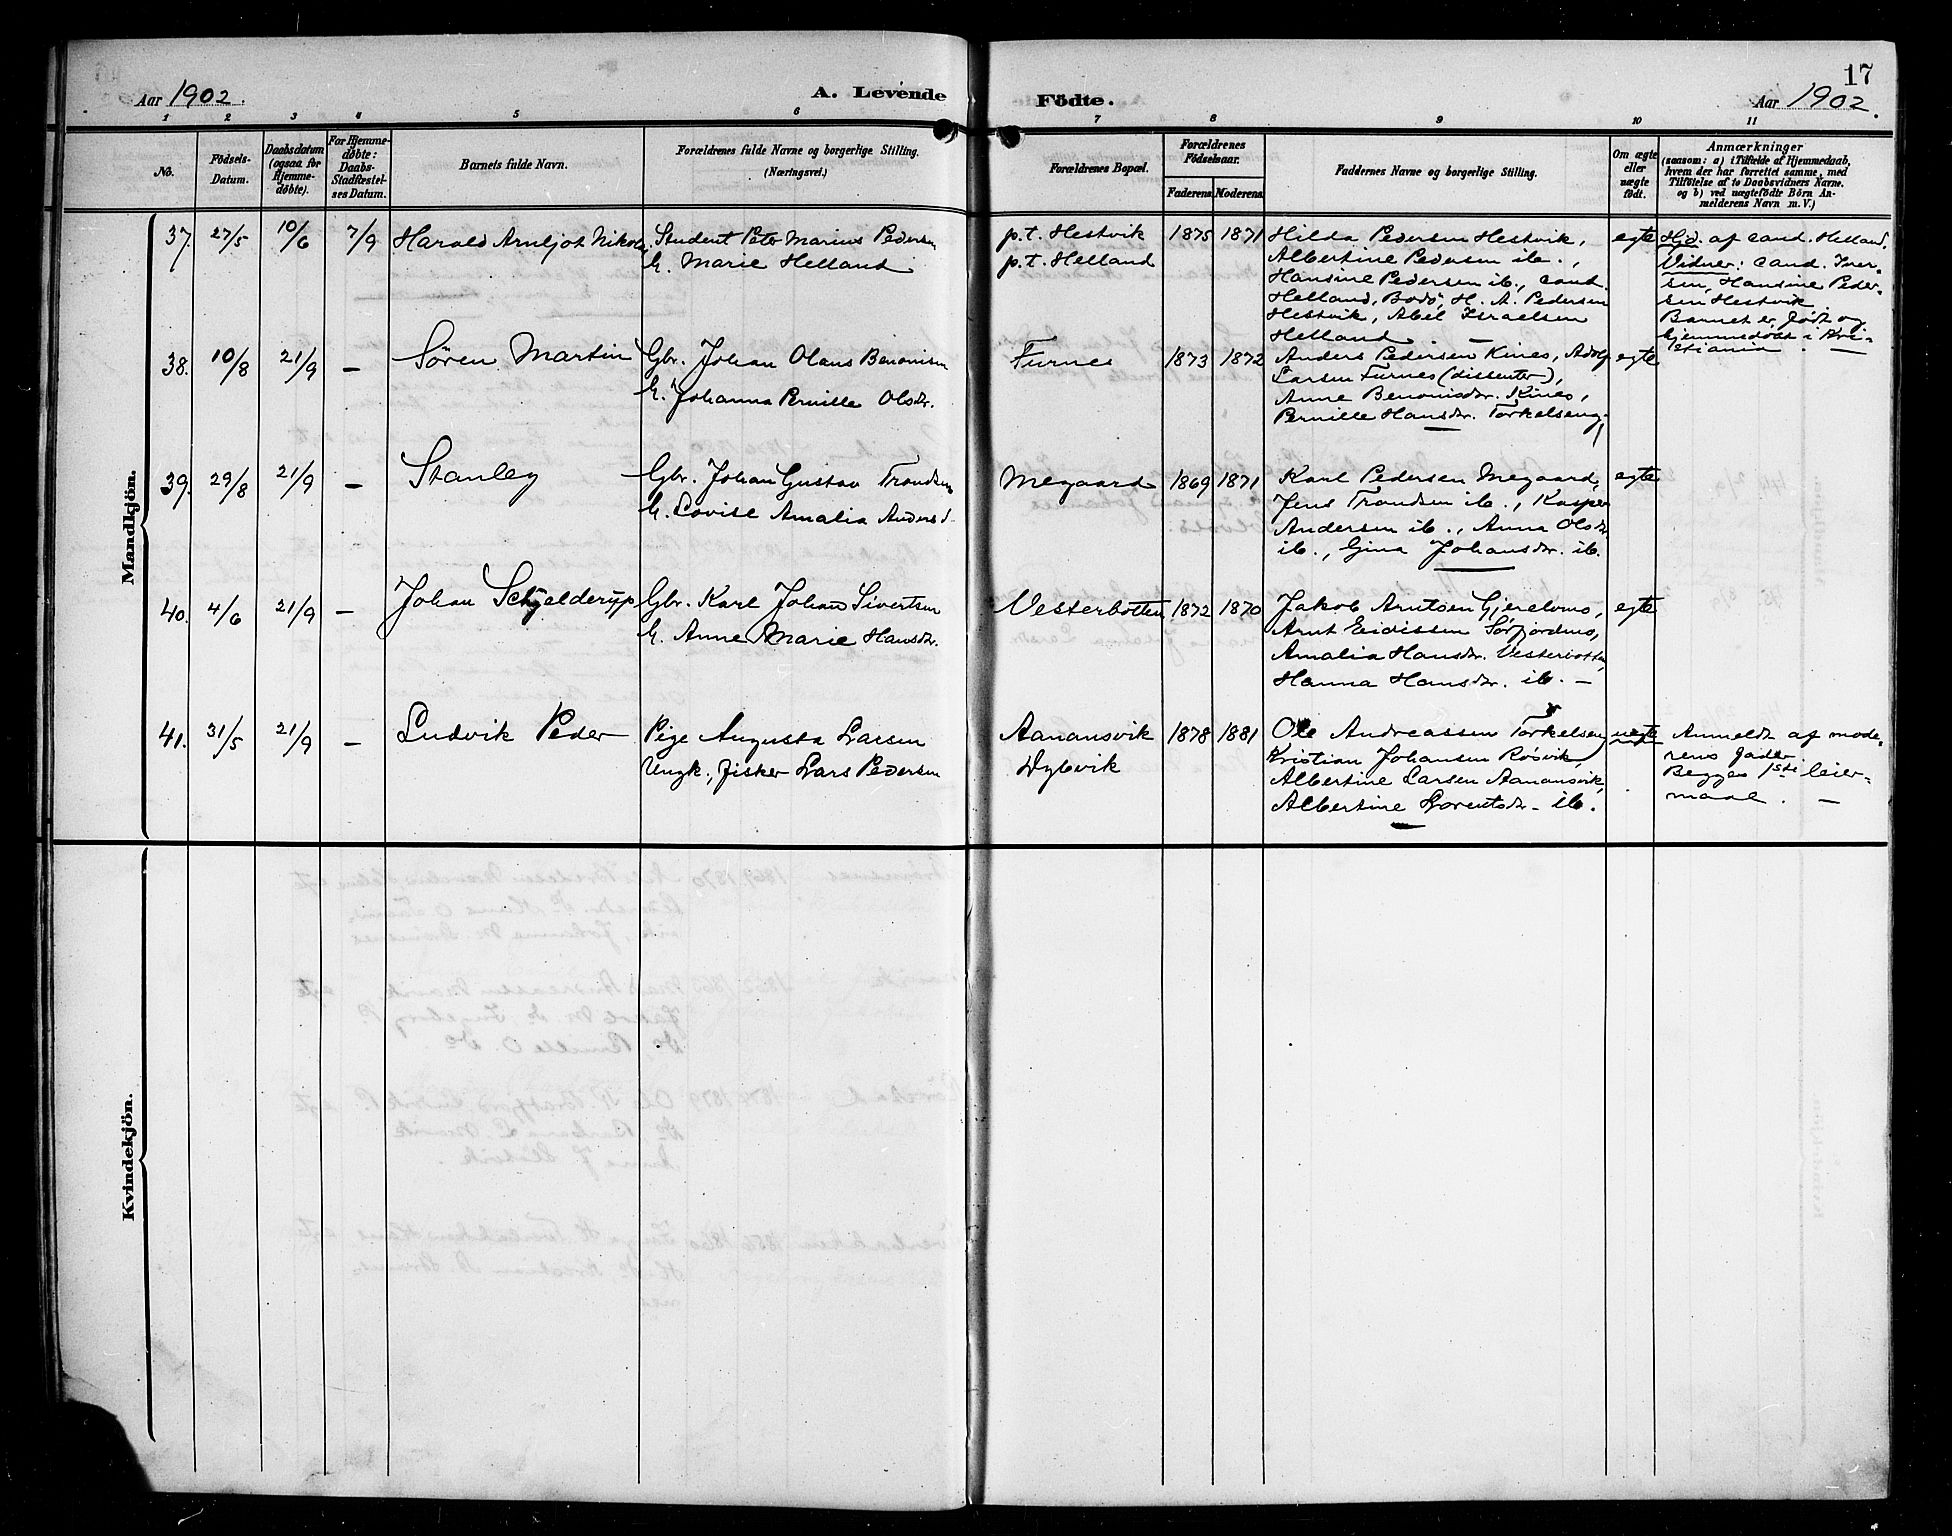 17
Aar 1902.
A. Levende
Födte.
Aar 1902.
1 2 3 4 5 6 7 8 9 10 11
No.
Födsels-Datum.
Daabsdatum (ogsaa for Hjemmedöbte).
For Hjemmedöbte: Daabs-Stadfæstelses Datum.
Barnets fulde Navn.
Forældrenes fulde Navne og borgerlige Stilling.
(Næringsvei.)
Forældrenes Bopæl.
Forældrenes Födselsaar.
Faderens. Moderens.
Faddernes Navne og borgerlige Stilling.
Om ægte eller uægte födt.
Anmærkninger
(saasom: a) i Tilfælde af Hjemmedaab,
hvem der har forrettet samme, med
Tilföielse af to Daabsvidners Navne.
og b) ved uægtefödte Börn An-
melderens Navn m. V.)
Mandkjön.
37. 27/5 10/6 7/9 Harald Arnljot Nikolai
Student Peter Marius Pedersen
h. Marie Helland
p.t. Hestvik
p.t. Helland
1875 1871
Hilda Pedersen Hestvik,
Albertine Pedersen ib.,
Hansine Pedersen ib., cand.
Helland, Bodö, H. A. Pedersen
Hestvik, Abel Israelsen
Helland. —
egte
Hjd. af cand. Helland.
Vidner: cand. Iver-
sen, Hansine Peder-
sen Hestvik
Barnet er födt og
hjemmedöbt i Kri-
stiania. —
38. 10/8 21/9 — Søren Martin
Gbr. Johan Olaus Benonisen
h. Johanna Pernille Olsdr.
Furnes
1873 1872
Anders Pedersen Kines, Adolf
Larsen Furnes (dissenter),
Anne Benonisdr. Kines,
Pernille Hansdr. Torkelseng.
egte
39. 29/8 21/9 — Stanley
Gbr. Johan Gustav Trondsen
h. Lovise Amalia Andersd.
Megaard
1869 1871
Karl Pedersen Megaard,
Jens Trondsen ib., Kasper
Andersen ib., Anna Olsdr.
ib., Gina Johansdr. ib.
egte
40. 4/6 21/9 — Johan Schjelderup
Gbr. Karl Johan Sivertsen
h. Anne Marie Hansdr.
Vesterbotten
1872 1870
Jakob Arntsen Gjerelvmo,
Arnt Eidissen Sørfjordmo,
Amalia Hansdr. Vesterbotten,
Hanna Hansdr. ib. —
egte
41. 31/5 21/9 — Ludvik Peder
Pige Augusta Larsen
Ungk., fisker Lars Pedersen
Aanansvik
Dybvik
1878 1881
Ole Andreassen Torkelseng
Kristian Johansen Røsvik,
Albertine Larsen Aanansvik,
Albertine Lorentsdr. ib.
uegte
Anmeldt af mode-
rens fader.
Begges 1ste leier-
maal. —
Kvindekjön.